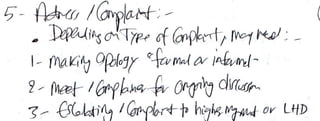 5 - Address / Complaint :-
• Depending on Type of Complaint, may need :-
1- making apology "formal or informal-
2- meet / Complainer for ongoing discussion
3- Escalating / Complaint to higher mgmt or LHD